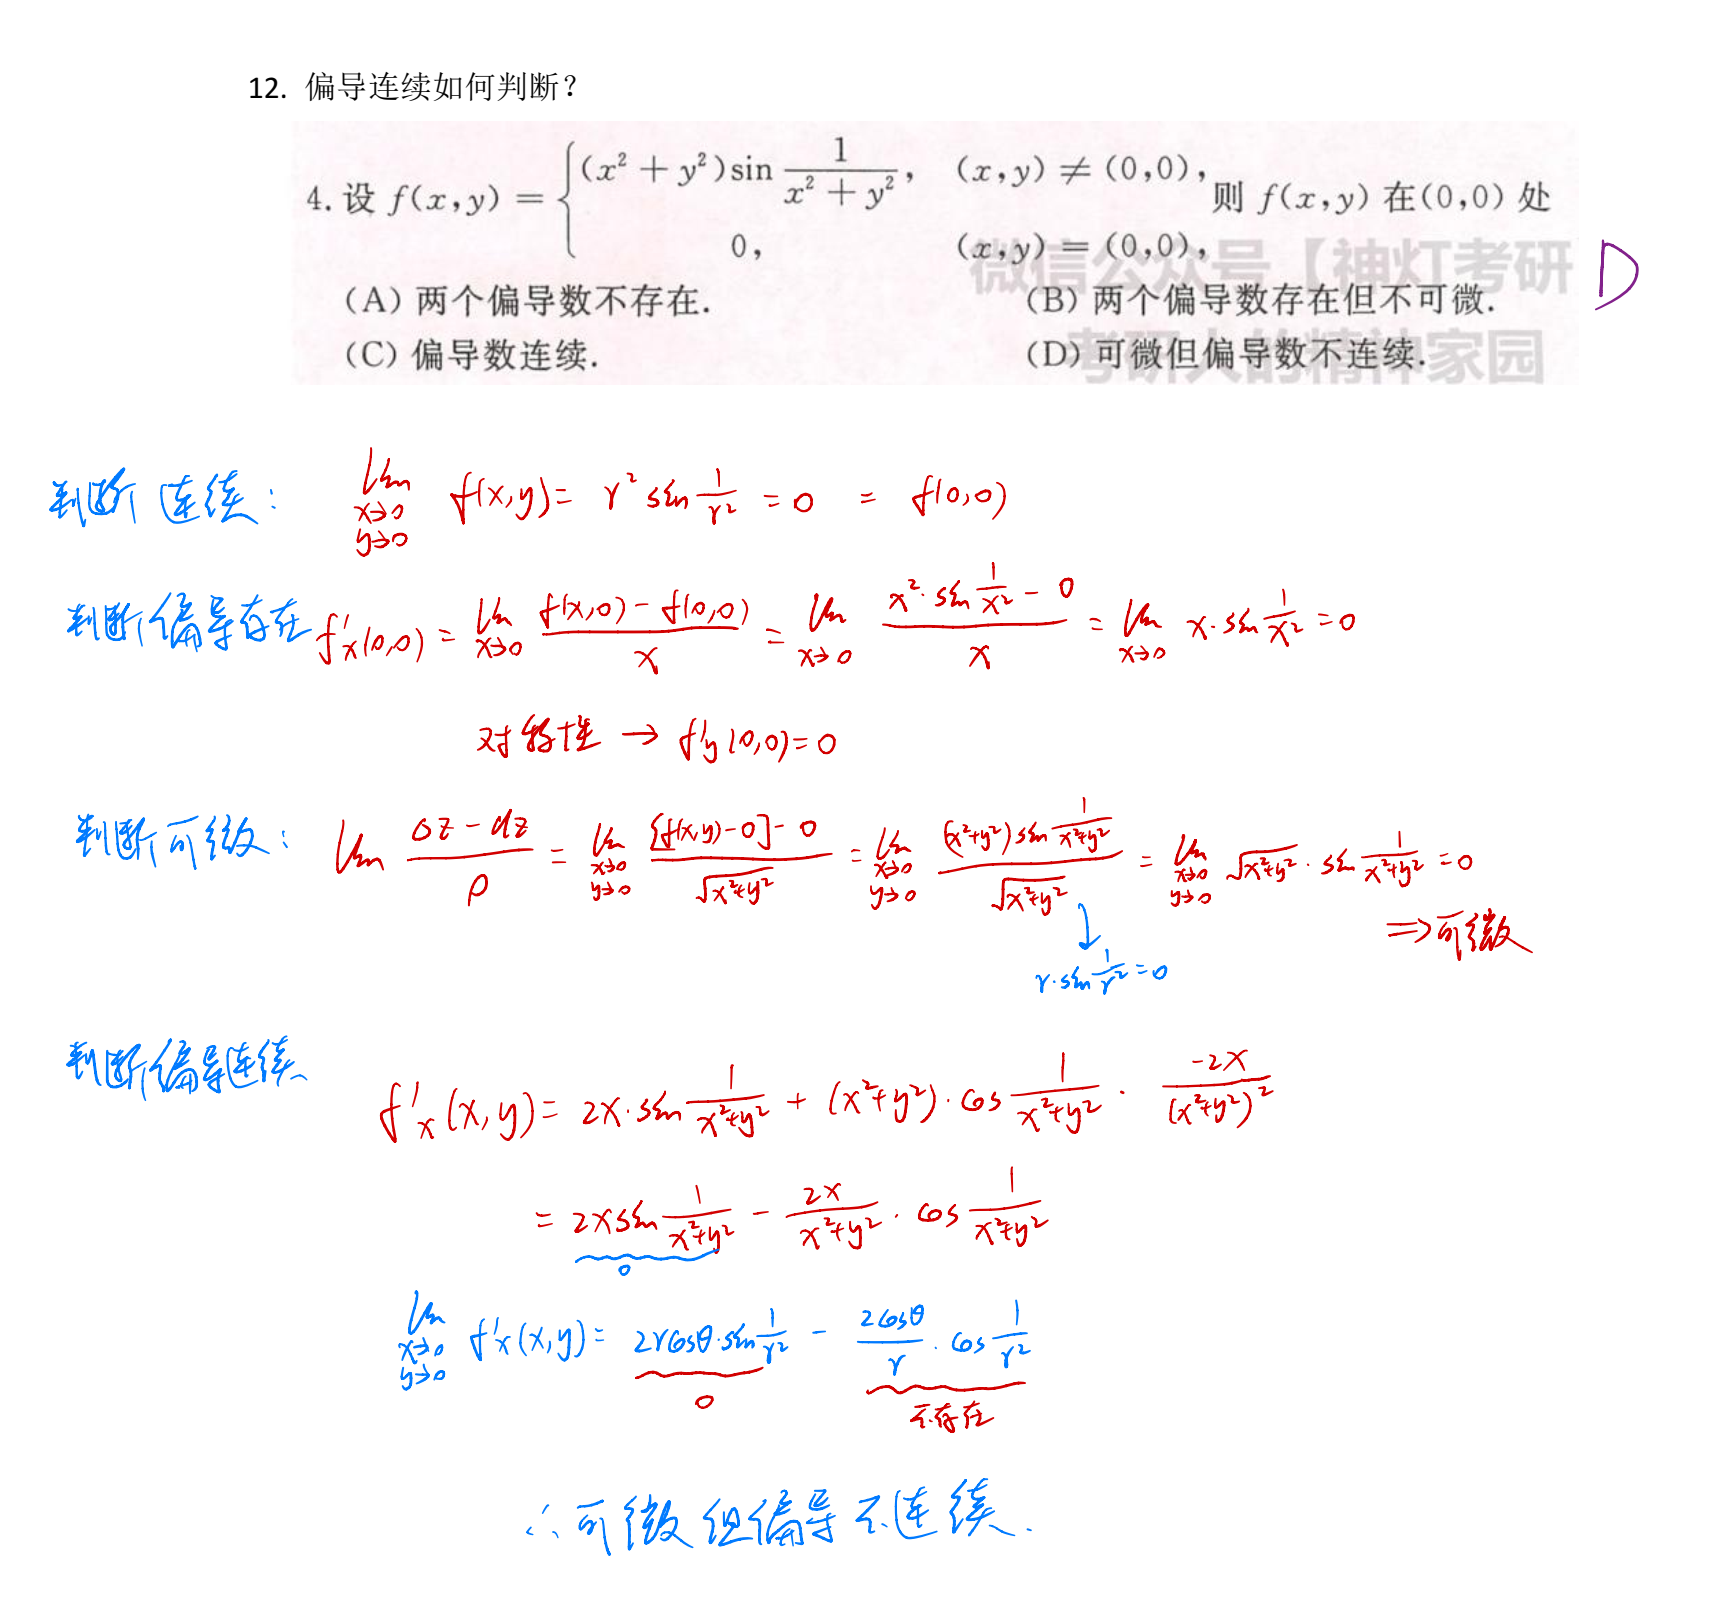 12. 偏导连续如何判断？
4. 设 f(x,y) = { (x² + y²)sin 1/(x² + y²), (x,y) ≠ (0,0), 0, (x,y) = (0,0), 则 f(x,y) 在(0,0) 处
微信公众号【神灯考研
D
(A) 两个偏导数不存在. (B) 两个偏导数存在但不可微.
(C) 偏导数连续. (D) 可微但偏导数不连续.
考研人的精神家园
判断连续: lim x→0 y→0 f(x,y) = r² sin 1/r² = 0 = f(0,0)
判断偏导存在 f'x(0,0) = lim x→0 (f(x,0) - f(0,0))/x = lim x→0 (x²·sin 1/x² - 0)/x = lim x→0 x·sin 1/x² = 0
对称性 → f'y(0,0) = 0
判断可微: lim (Δz - dz)/ρ = lim x→0 y→0 ([f(x,y) - 0] - 0)/√(x²+y²) = lim x→0 y→0 ((x²+y²) sin 1/(x²+y²))/√(x²+y²) = lim x→0 y→0 √(x²+y²) · sin 1/(x²+y²) = 0
⇒ 可微
r·sin 1/r² = 0
判断偏导连续
f'x(x,y) = 2x·sin 1/(x²+y²) + (x²+y²)·cos 1/(x²+y²) · -2x/(x²+y²)²
= 2x sin 1/(x²+y²) - 2x/(x²+y²) · cos 1/(x²+y²)
0
lim x→0 y→0 f'x(x,y) = 2rcosθ·sin 1/r² - 2cosθ/r · cos 1/r²
0 不存在
∴ 可微但偏导不连续.